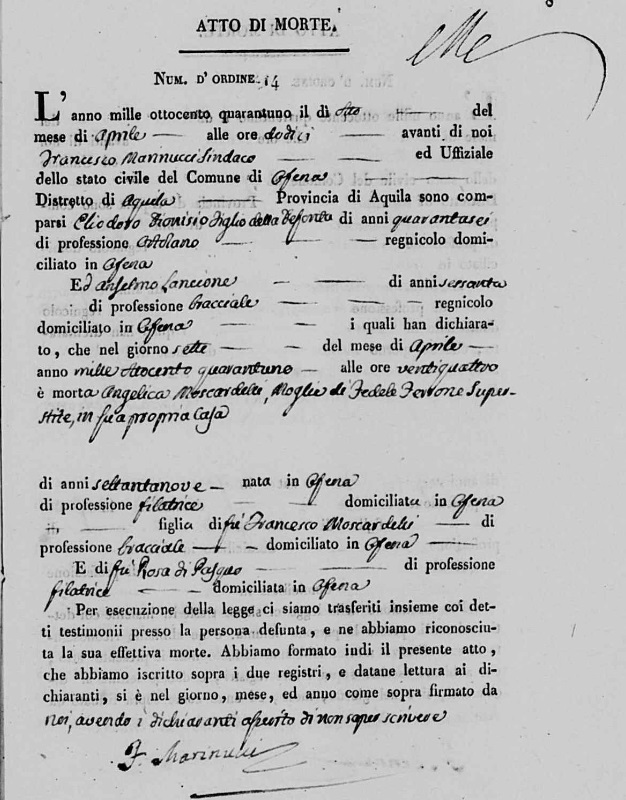 ATTO DI MORTE.
NUM. D' ORDINE 14
L' anno mille ottocento quarantuno il dì Otto del
mese di Aprile alle ore dodici avanti di noi
Francesco Marinucci Sindaco ed Uffiziale
dello stato civile del Comune di Ofena
Distretto di Aquila Provincia di Aquila sono com-
parsi Eliodoro Dionisio figlio della di anni quarantasei
di professione regnicolo domi-
ciliato in Ofena
Ed Anselmo Lancione di anni sessanta
di professione bracciale regnicolo
domiciliato in Ofena i quali han dichiara-
to, che nel giorno sette del mese di Aprile
anno mille ottocento quarantuno alle ore ventiquattro
è morta Angelica Moscardelli, Moglie di Fedele Ferrone Super-
stite, in sua propria Casa
di anni settantanove nata in Ofena
di professione filatrice domiciliata in Ofena
figlia di fu Francesco Moscardelli di
professione bracciale domiciliato in Ofena
E di fu Rosa di di professione
filatrice domiciliata in Ofena
Per esecuzione della legge ci siamo trasferiti insieme coi det-
ti testimonii presso la persona defunta, e ne abbiamo riconosciu-
ta la sua effettiva morte. Abbiamo formato indi il presente atto,
che abbiamo iscritto sopra i due registri, e datane lettura ai di-
chiaranti, si è nel giorno, mese, ed anno come sopra firmato da
noi, avendo i dichiaranti asserito di non saper scrivere
F. Marinucci